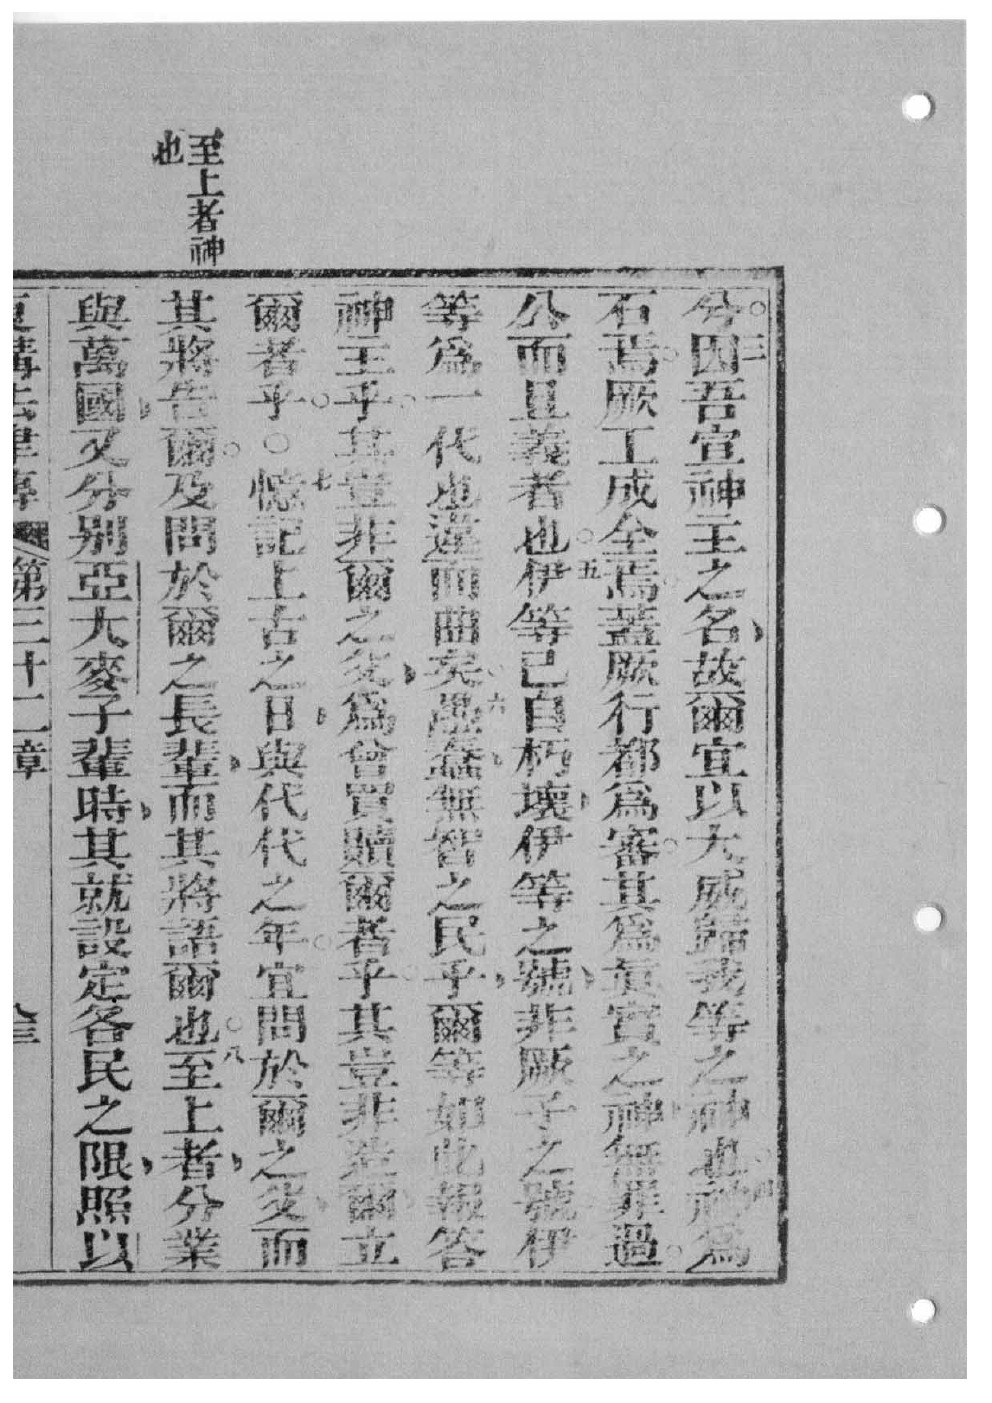 至上者神
也
分。三因吾宣神主之名、故爾宜以大威歸我等之神也。四神爲
石焉。厥工成全焉。蓋厥行都爲審。其爲眞實之神、無罪過。
公而且義者也。五伊等已自朽壞、伊等之號、非厥子之號、伊
等爲一代也違而曲矣。六愚蠢、無智之民乎、爾等如此報答
神主乎。其豈非爾之父、爲曾買贖爾者乎。其豈非造爾、立
爾者乎。○七憶記上古之日、與代代之年。宜問於爾之父、而
其將告爾。及問於爾之長輩、而其將語爾也。八至上者、分業
與萬國、又分別亞大麥子輩時、其就設定各民之限、照以
復講法律傳 第三十二章